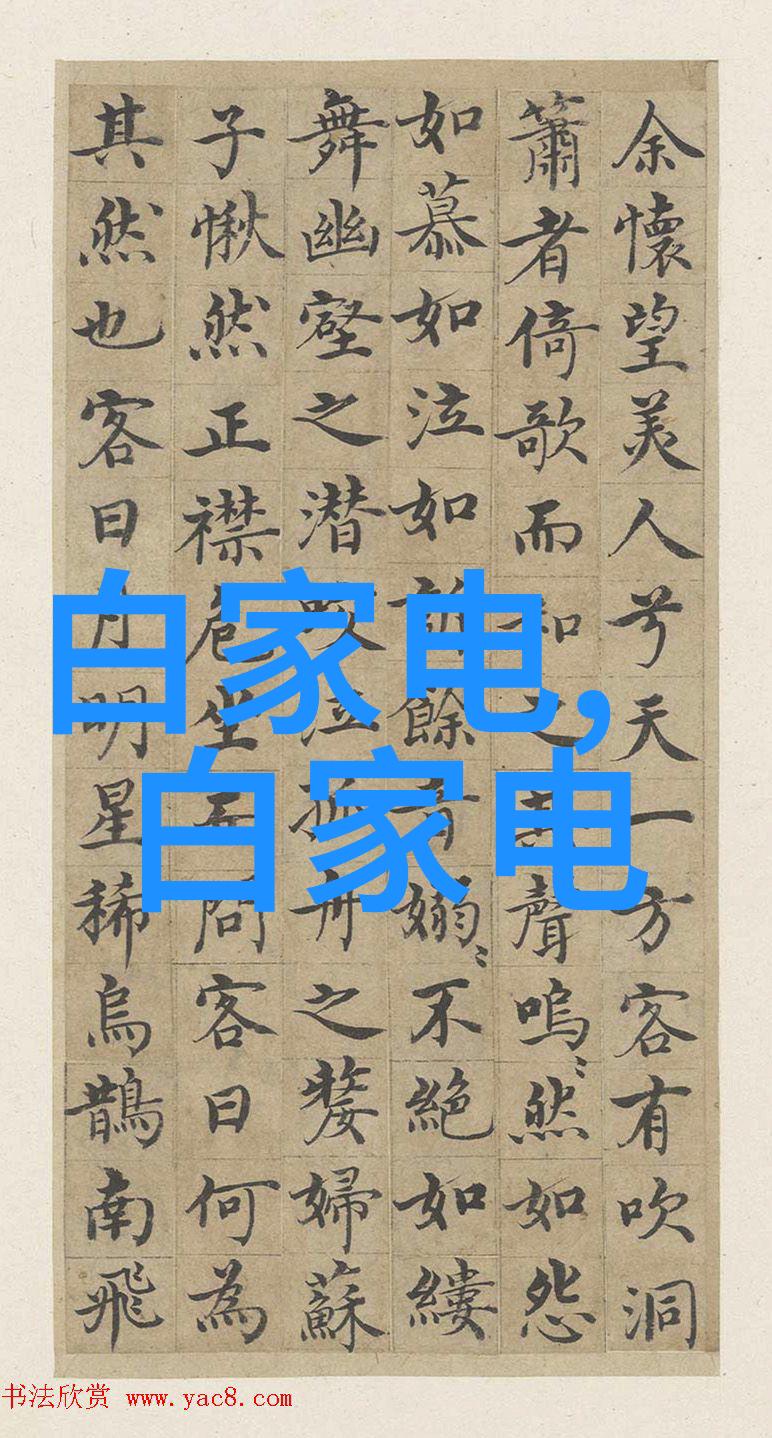 余懷望美人兮天一方客有吹洞
簫者倚歌而和之其聲嗚〻然如怨
如慕如泣如訴餘音嫋〻不絕如縷
舞幽壑之潛蛟泣孤舟之嫠婦蘇
子愀然正襟危坐而問客曰何為
其然也客曰月明星稀烏鵲南飛
白家电,
白家电
书法欣赏 www.yac8.com